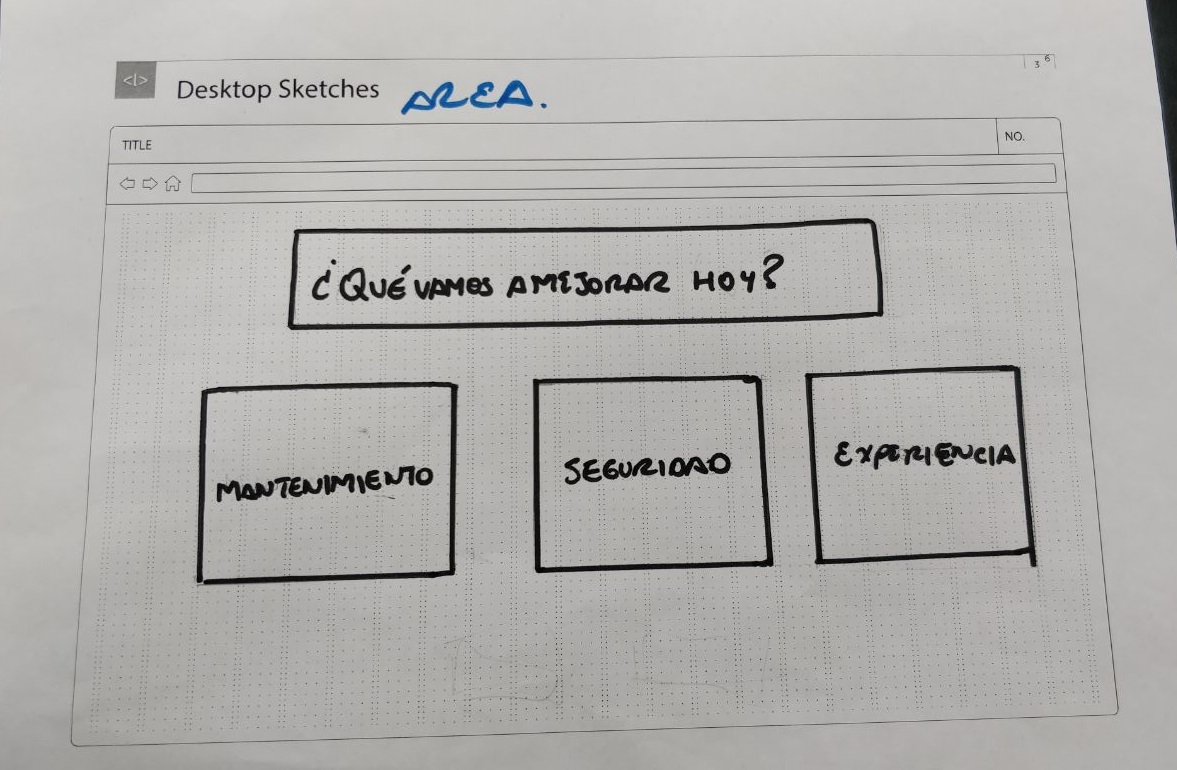 <|>
Desktop Sketches AREA.
3 6
TITLE
NO.
¿QUÉ VAMOS A MEJORAR HOY?
MANTENIMIENTO
SEGURIDAD
EXPERIENCIA